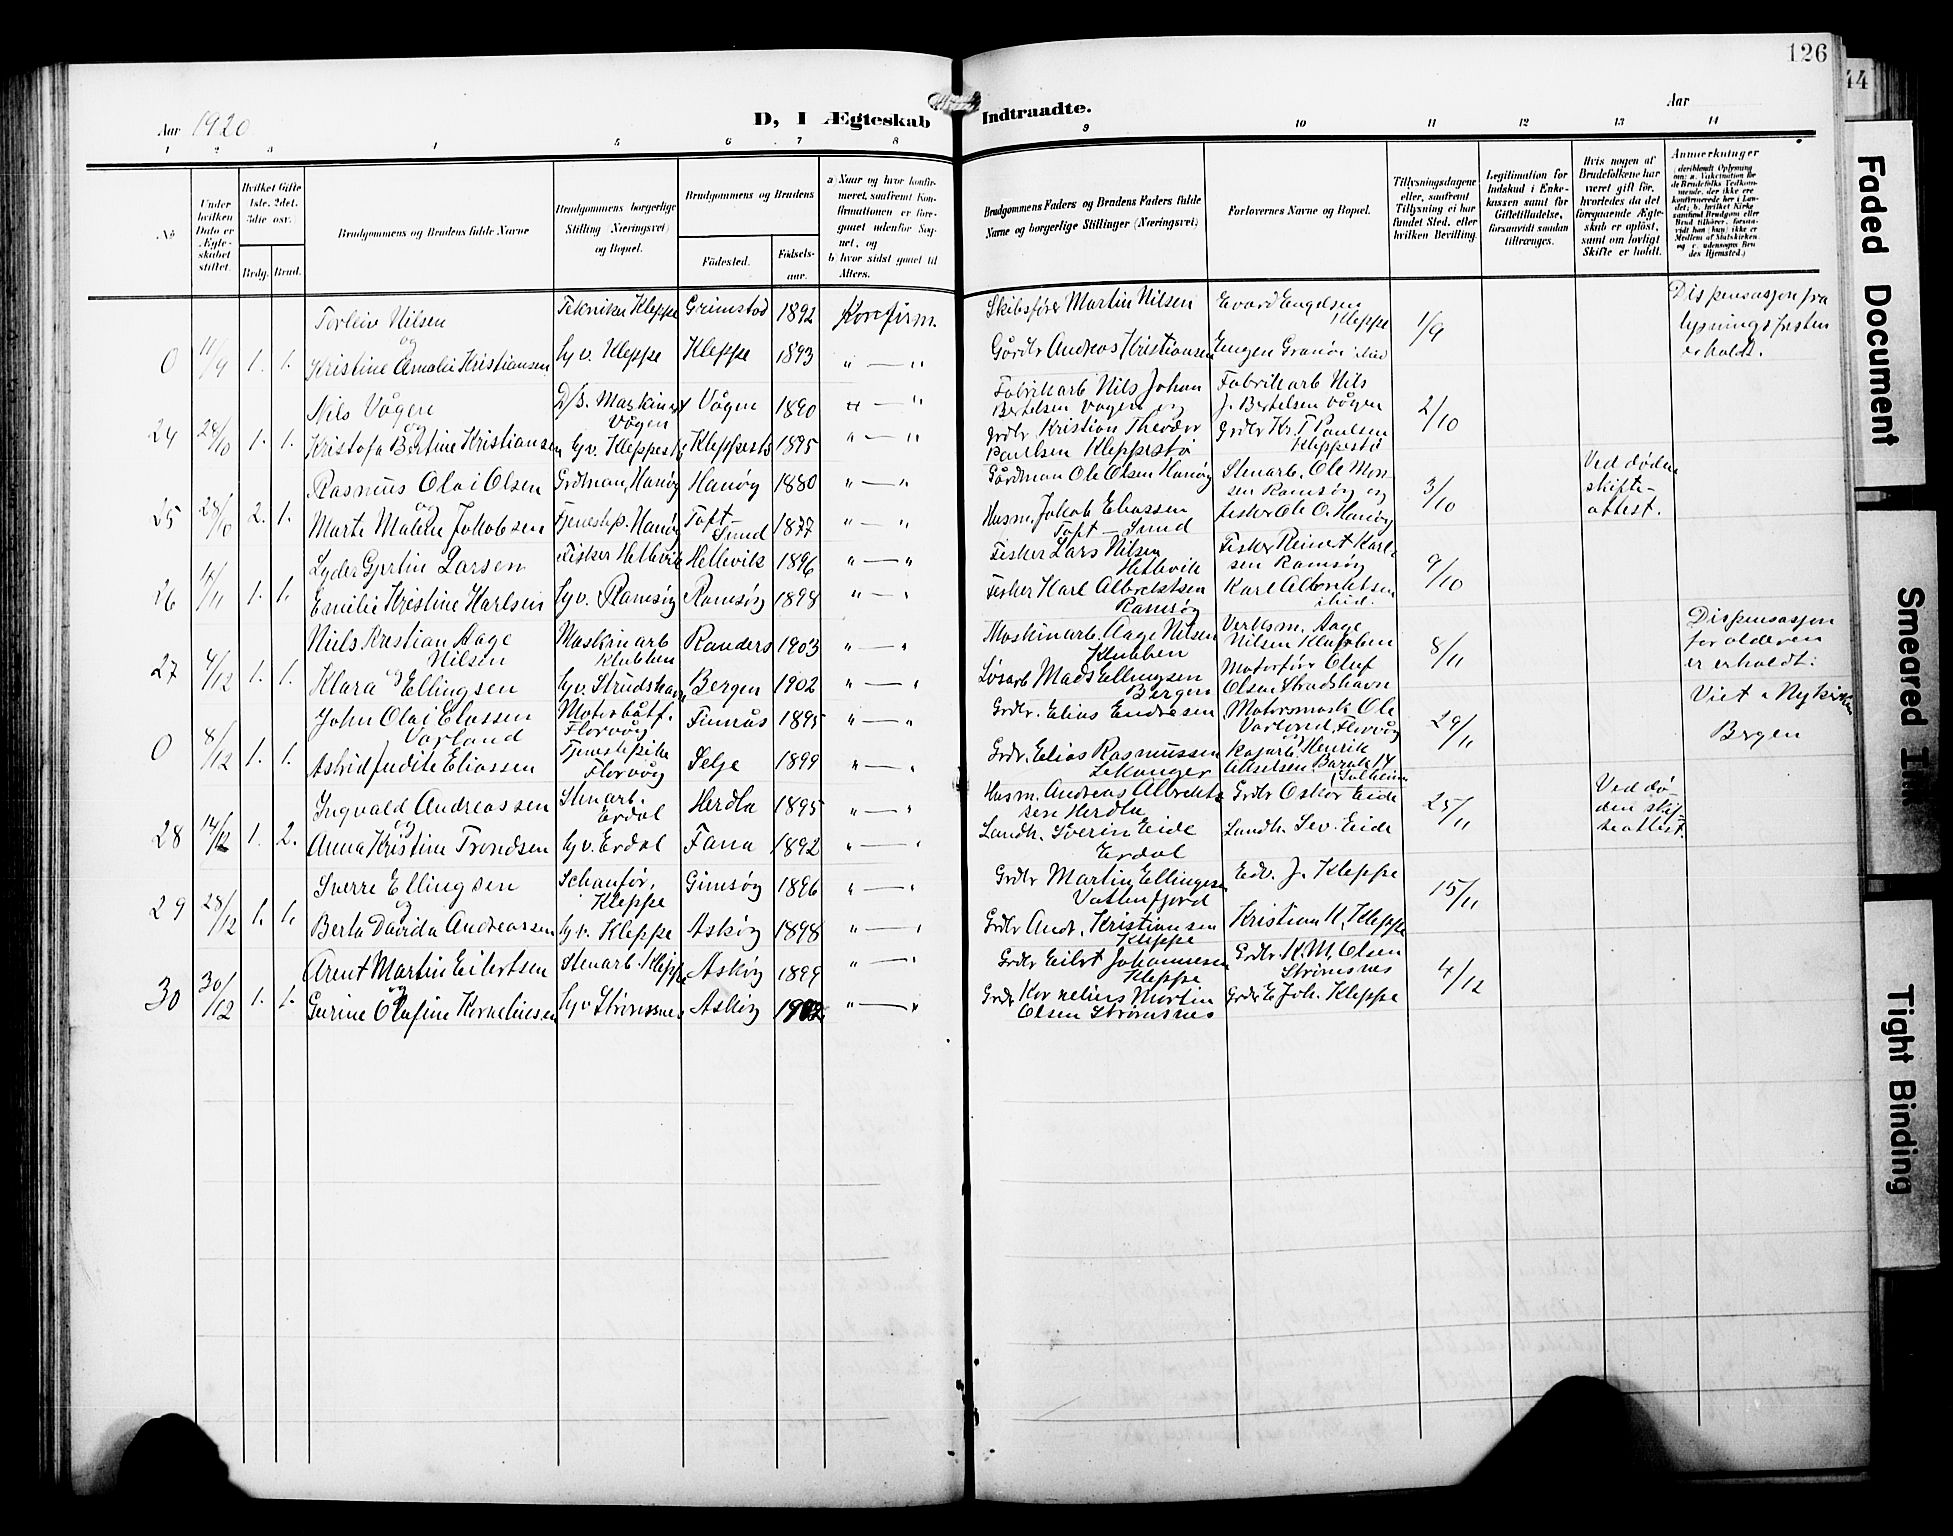 126
44
Aar 1920
D, I Ægteskab Indtraadte.
Aar
1 2 3 4 5 6 7 8 9 10 11 12 13 14
No
Under hvilken Dato er Ægteskabet stiftet.
Hvilket Gifte 1ste, 2det, 3die osv.
Brdg. Brud.
Brudgommens og Brudens fulde Navne
Brudgommens borgerlige Stilling (Næringsvei) og Bopæl.
Brudgommens og Brudens
Fødested. Fødselsaar.
a) Naar og hvor konfirmeret, samfremt Konfirmationen er foregaaet udenfor Sognet, og
b) hvor sidst gaaet til Alters.
Brudgommens Faders og Brudens Faders fulde Navne og borgerlige Stillinger (Næringsvei)
Forlovernes Navne og Bopæl.
Tillysningsdagene eller, samfremt Tillysning ei har fundet Sted, efter hvilken Bevilling.
Legitimation for Indskud i Enkekassen samt for Giftetilladelse, forsaavidt saadan tiltrænges.
Hvis nogen af Brudefolkene har været gift før, hvorledes da det foregaaende Ægteskab er opløst, samt om lovligt Skifte er holdt.
Anmerkninger
Torleiv Nilsen Tekniker Kleppe Grimstad 1892 Konfirm. Skibsfører Martin Nilsen Evard Engelsen Kleppe 1/9 Dispensasjon fra lysningsfristen erholdt.
og
0 11/9 1. 1. Kristine Amalie Kristiansen Gv. Kleppe Kleppe 1893 " — " Gårdbr Andreas Kristiansen
Nils Vågen D/S. Maskinist Vågen Vågen 1890 " — " Fabrikarb Nils Johan Bertelsen Vågen og Fabrikarb Nils J. Bertelsen Vågen 2/10
og
24 24/10 1. 1. Kristofa Bertine Kristiansen Gv. Kleppestø Kleppestø 1895 " — " Grdbr Kristian Theodor Paulsen Kleppestø Grdbr Kr. T Paulsen Kleppestø
Rasmus Olai Olsen Grdman, Hanøy Hanøy 1880 " — " Gårdman Ole Olsen Hanøy Stenarb. Ole Monsen Ramsøy og 3/10 Ved døden skifteattest.
og
25 28/10 2. 1. Marte Malene Jakobsen Tjenestep. Hanøy Toft-Sund 1877 " — " Husm. Jakob Eliassen Toft — Sund fisker Ole O. Hanøy
Lyder Gjertin Larsen Fisker Hellevik Hellevik 1896 " — " Fisker Lars Nilsen Hellevik Fisker Reinert Karlsen Ramsøy 9/10
26 14/11 1. 1. Emilie Kristine Karlsen Gv. Ramsøy Ramsøy 1898 " — " Fisker Karl Albretstsen Ramsøy Karl Albrektsen ibid.
Niels Kristian Aage Nilsen Maskinarb Klubben Randers 1903 " — " Maskinarb. Aage Nilsen Klubben Verksm. Aage Nilsen Klubben 8/11 Dispensasjon for alderen er erholdt.
og
27 4/12 1. 1. Klara Ellingsen Gv. Strudshavn Bergen 1902 " — " Løsarb Mads Ellingsen Bergen Motorfør Oluf Olsen Strudshavn
John Olai Elassen Varland Motorbåtf. Florvåg Finnås 1895 " — " Grdbr. Elias Endresen Motormask Ole Varland, Florvåg 29/11 Viet i Nykirken Bergen
0 8/12 1. 1. Astrid Judite Eliassen Tjenestepike Florvåg Selje 1899 " — " Grdbr. Elias Rasmussen Lekanger Henrik Barak 14 Solheim
Ingvald Andreassen Stenarb. Erdal Herdla 1895 " — " Husm. Andreas Albrektsen Herdla Grdbr Oskar Eide 25/11 Ved døden skifteattest.
og
28 14/12 1. 2. Anna Kristine Trondsen Gv. Erdal Fana 1892 " — " Landh. Sverin Eide Erdal Landh. Sev. Eide
Sverre Ellingsen Schaufør, Kleppe Gimsøy 1896 " — " Grdbr Martin Ellingsen Vattenfjord Edv. J. Kleppe 15/11
og
29 28/12 1. 1. Berta Davida Andreassen Gv. Kleppe Askøy 1898 " — " Grdbr Andr. Kristiansen Kleppe Kristian K. Kleppe
Arent Martin Eilertsen Stenarb. Kleppe Askøy 1899 " — " Grdbr Eilert Johannesen Kleppe Grdbr K. M. Olsen Strømsnes 4/12
og
30 30/12 1. 1. Gurine Olufine Korneliusen Gv Strømsnes Askøy 1902 " — " Grdbr Kornelius Martin Olsen Strømsnes Grdbr E Joh. Kleppe
Faded Document
Smeared Ink
Tight Binding